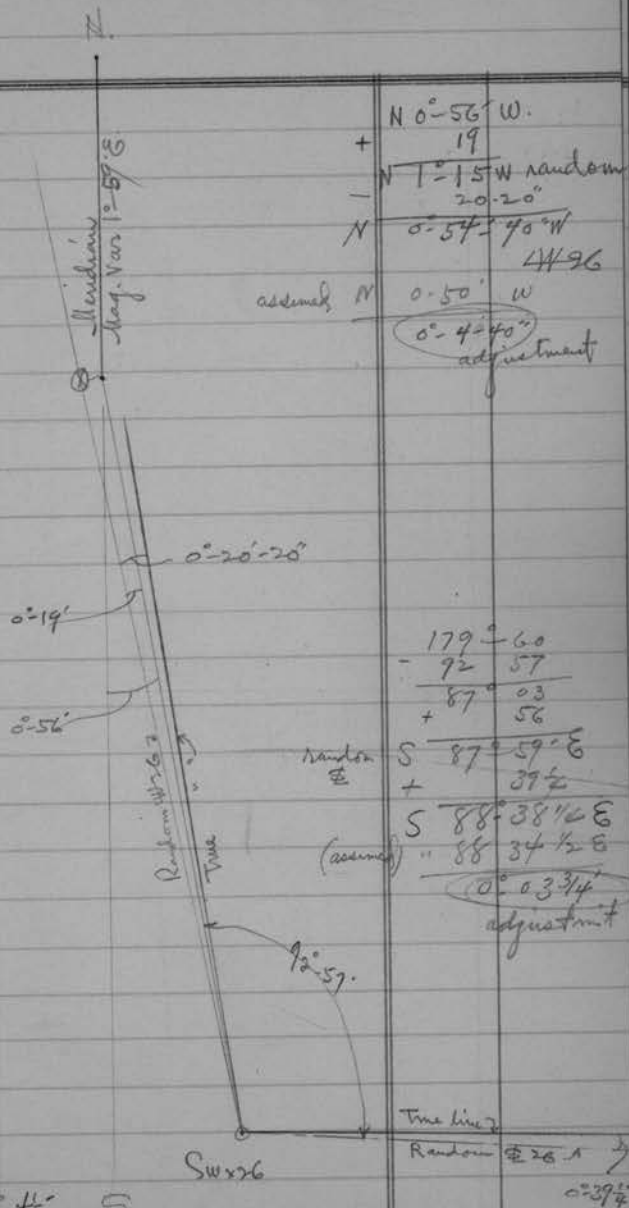 N
Meridian
Mag. Var 1°-59' E.
N 0°-56' W.
+ 19
N 1°-15 W random
- 20-20"
N 0°-54'-40" W
W 26
assumed N 0-50' W
0°-4'-40"
adjustment
0°-20'-20"
0°-19'
0°-56'
179°-60
- 92 57
87° 03
+ 56
random S 87°-59' E
+ 39 1/4
S 88°-38 1/4 E
(assumed) " 88 34 1/2 E
0°-03 3/4'
adjustmit
Random W 26
True " "
92°-57'
True line
Random 26
SW x 26
0°-39 1/4'